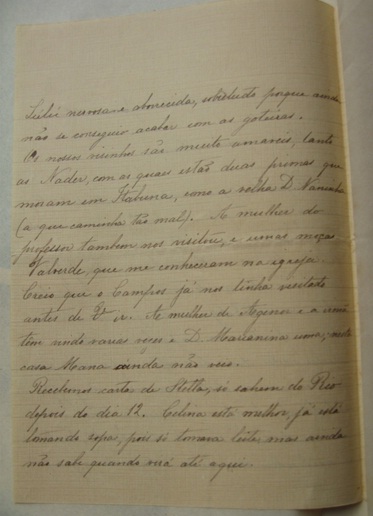 nervosa e aborrecida, sobretudo porque ainda
não se conseguiu acabar com as goteiras.
Os nossos visinhos são muito amaveis, tanto
as Nader, com as quaes estão duas primas que
moram em Itabuna, como a velha D.
(a que caminha tão mal). A mulher do
professor tambem nos visitou, e umas moças
Valverde, que me conheceram na egreja.
Creio que o Campos já nos tinha visitado
antes de V. ir. A mulher de Agenor e a irmã
têm vindo varias vezes e D. Marianna uma; nesta
casa Mana ainda não veio.
Recebemos carta de Stella, só sahem do Rio
depois do dia 12. Celina está melhor, já está
tomando sopa, pois só tomava leite, mas ainda
não sabe quando virá até aqui.